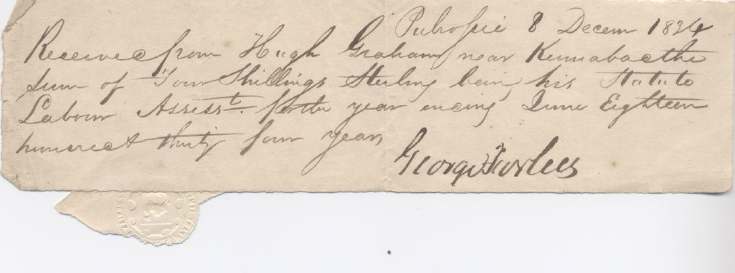 8 Decem 1834
Received from Hugh Graham near the
sum of Four Shillings Sterling being his Statute
Labour Assesst. for the year ending June Eighteen
hundred thirty four years
George